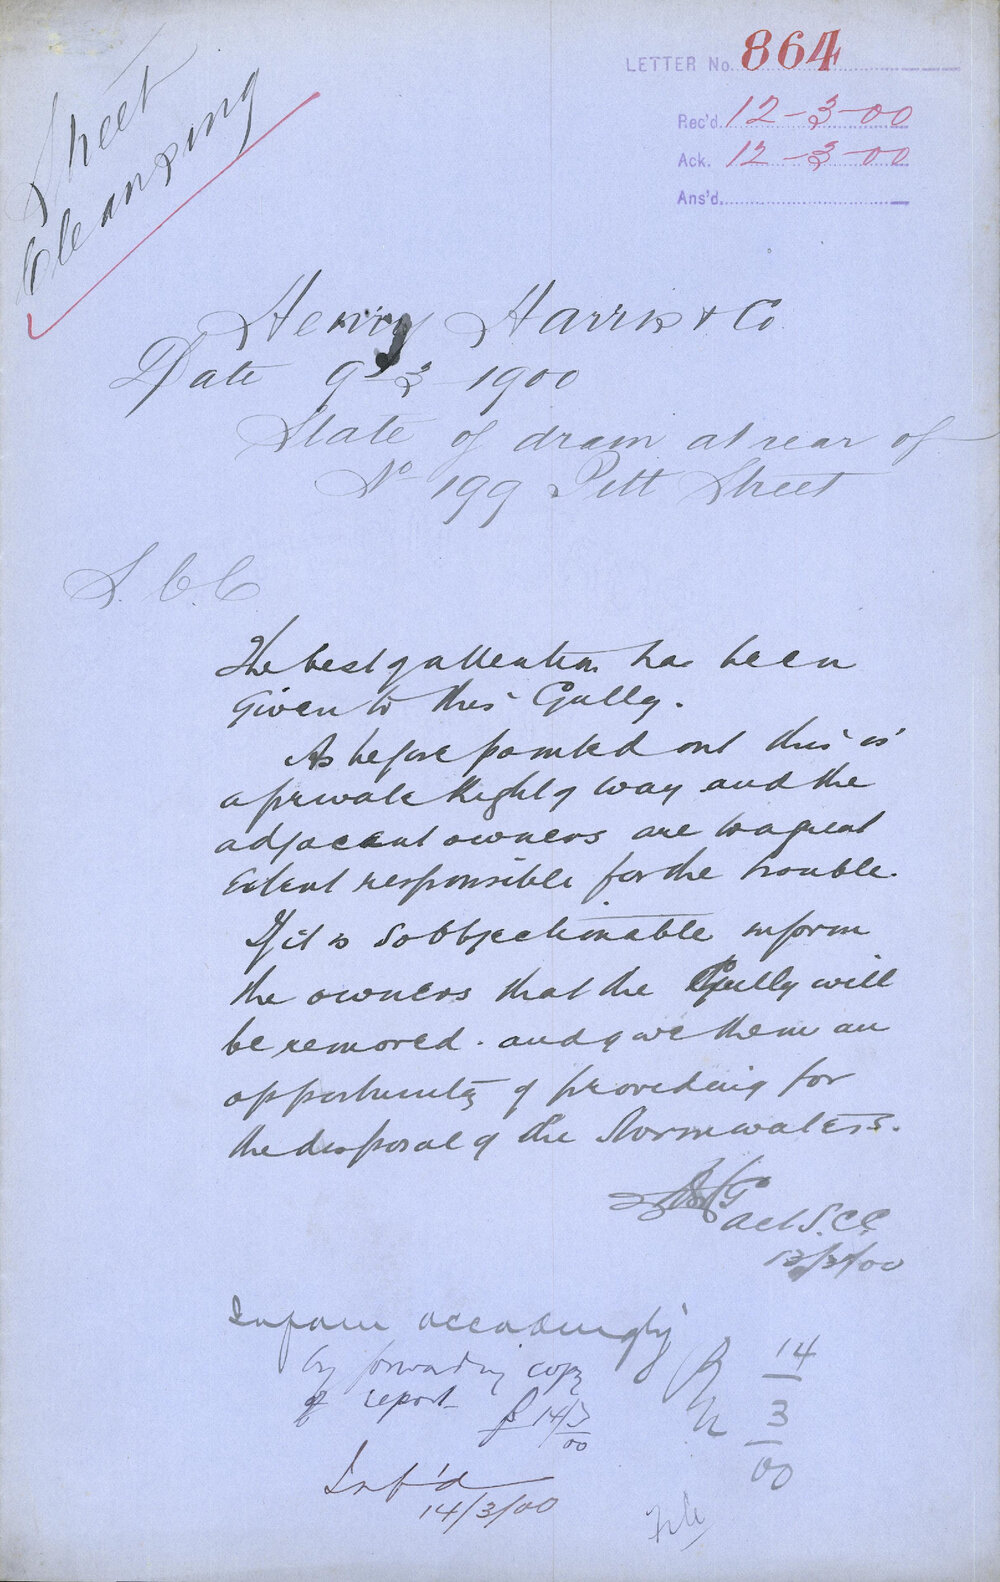 LETTER No. 864
Rec'd. 12-3-00
Ack. 12-3-00
Ans'd.
Street
Cleansing
Henry Harris & Co
Date 9-3-1900
State of drain at rear of
No 199 Pitt Street
S.C.C
The best of attention has been
given to this Gully.
As before pointed out this is
a private Right of way and the
adjacent owners are to a great
extent responsible for the trouble.
If it is so objectionable inform
the owners that the Gully will
be removed. and give them an
opportunity of providing for
the disposal of the Stormwaters.
Act S.C.C.
13/3/00
Inform accordingly
by forwarding copy
of report
14/3/00
14
3
00
Inf'd
14/3/00
File